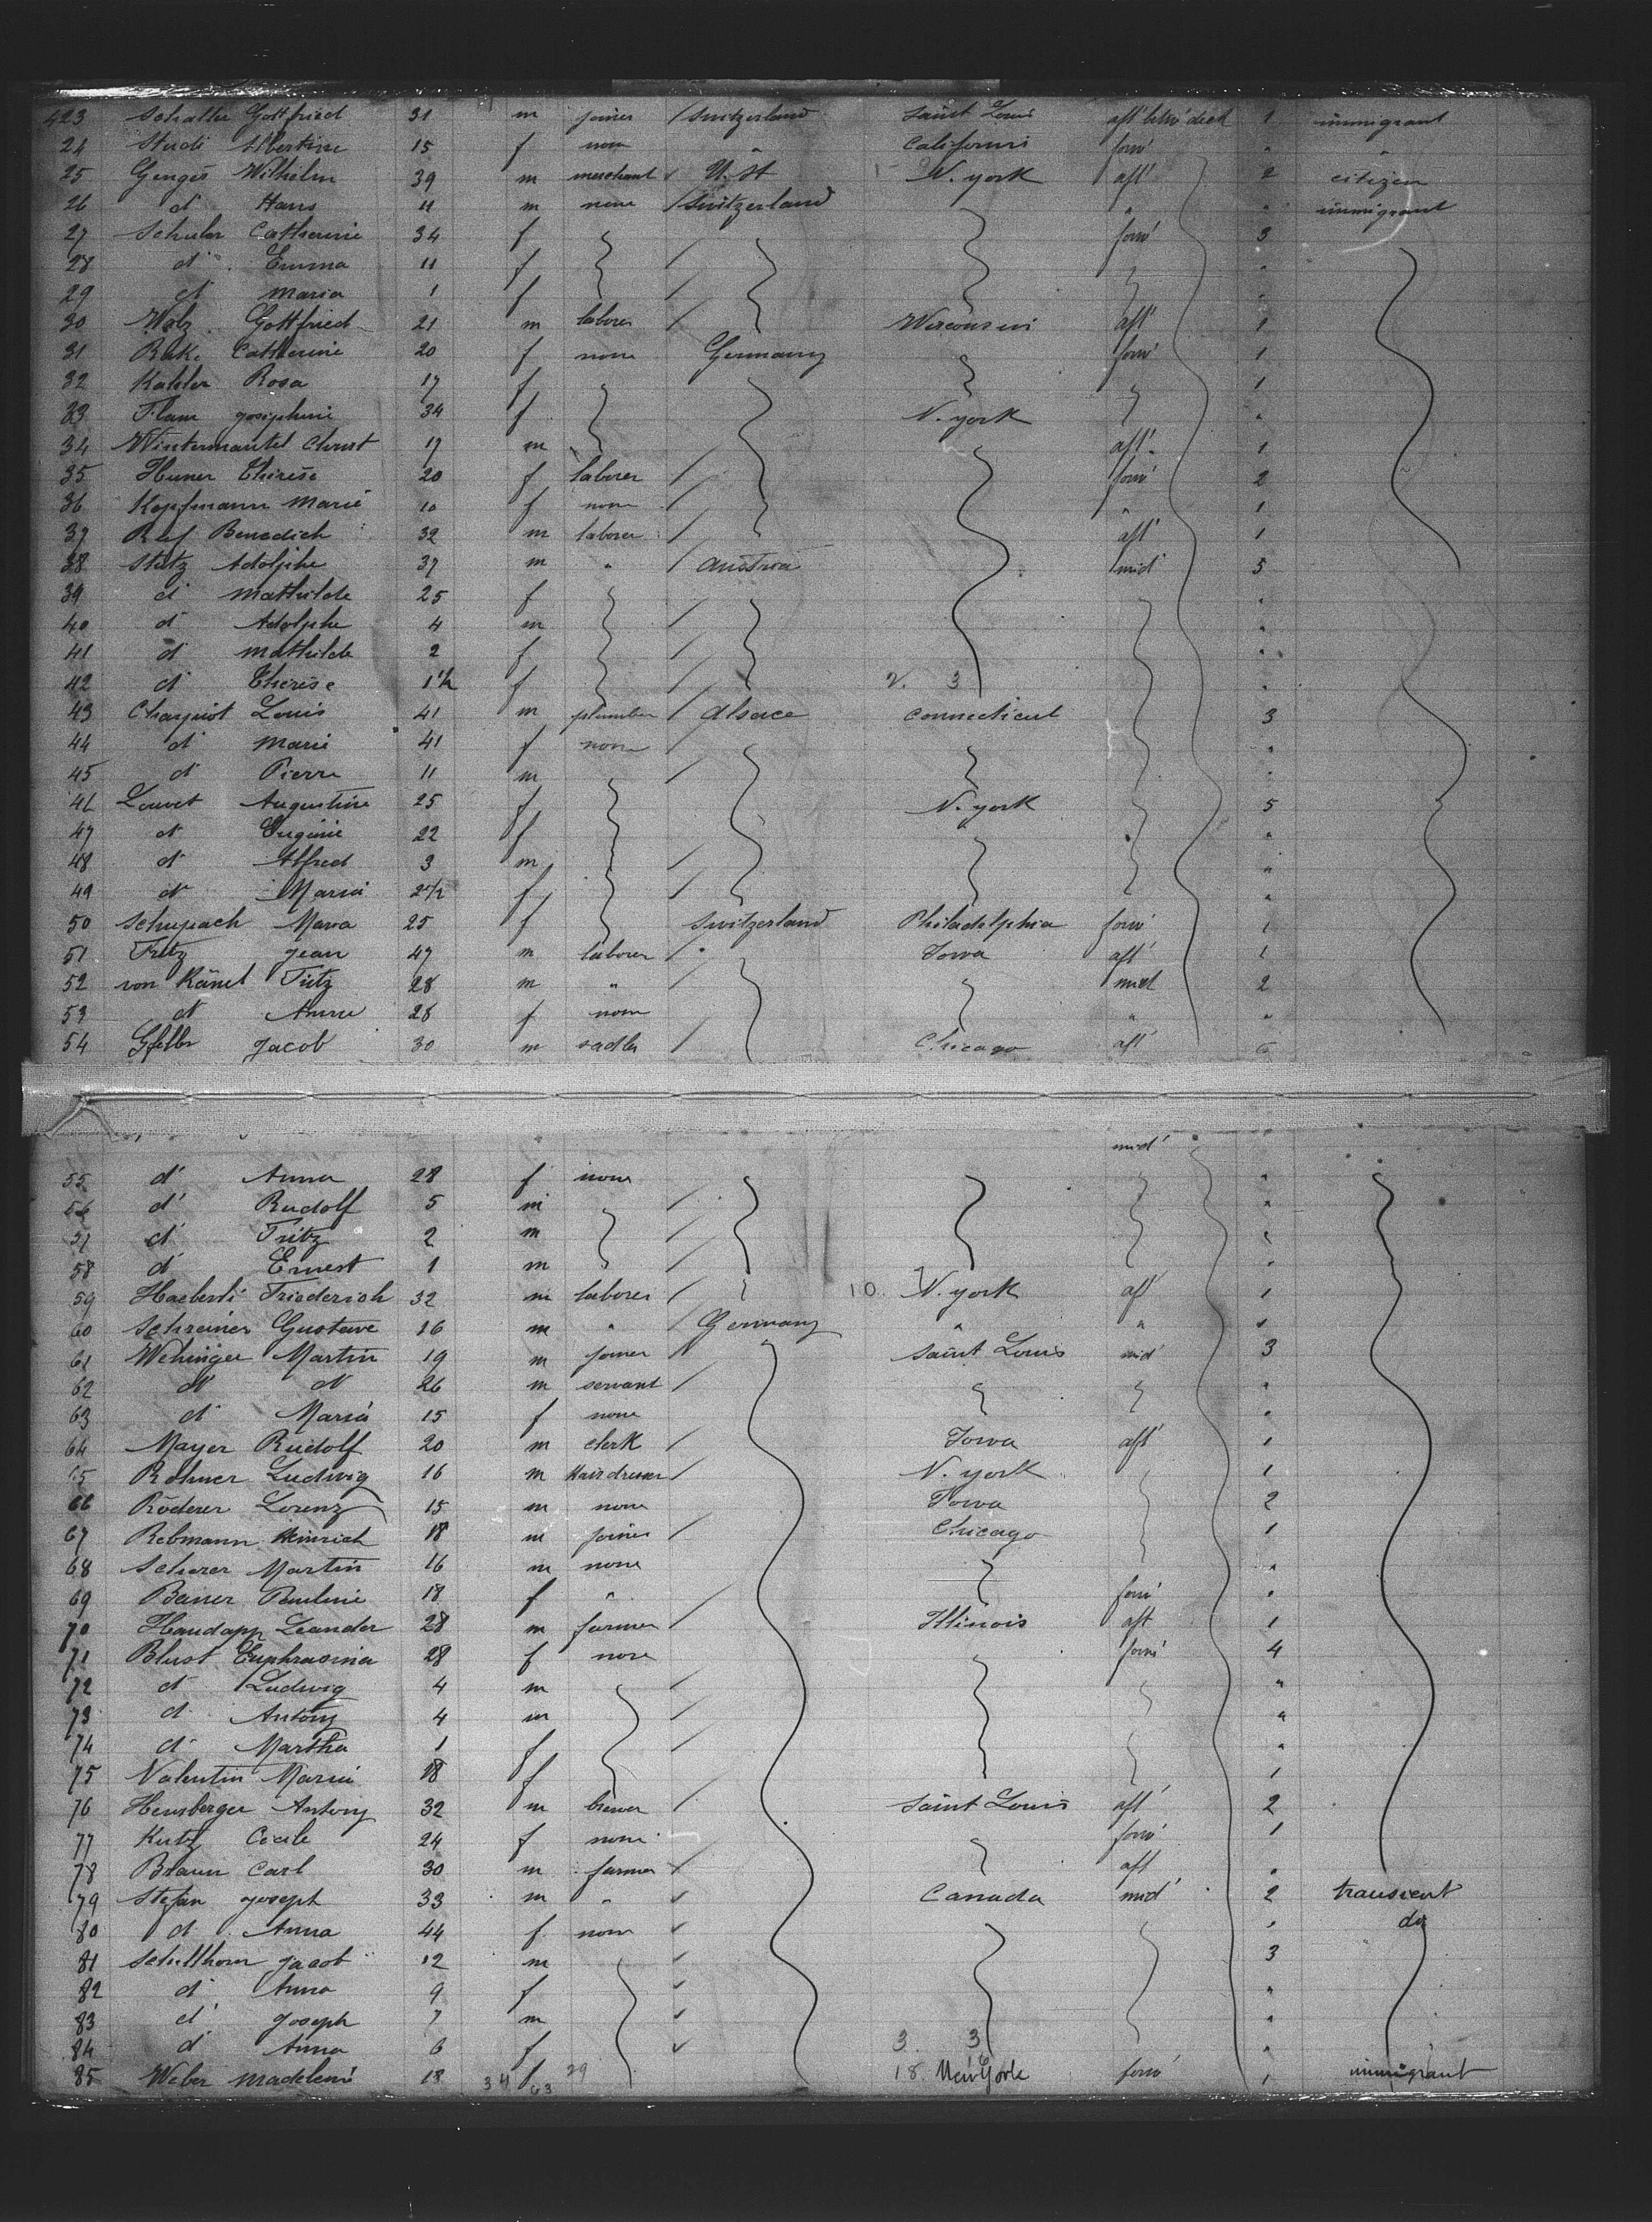 423 Schaller Gottfried 31 m joiner / Switzerland Saint Louis aft' betw' deck 1 immigrant
24 Studi Albertine 15 f none " Californi forw' " "
25 Wilhelm 39 m merchant ✓ U. St N. york aft' 2 citizen
26 d' Hans 11 m none / Switzerland " " immigrant
27 Schuler Catherine 34 f forw' 3
28 d'. Emma 11 f / "
29 d' Maria 1 f / "
30 Walz Gottfried 21 m laborer / Wisconsin aft' 1
31 Catherine 20 f none Germany forw' 1
32 Kahler Rosa 17 f 1
33 Flam josephine 34 f N. york "
34 Wintermantel Christ 17 m aft' 1
35 Huner Therese 20 f laborer / forw' 2
36 Kopfmann Marie 10 f none / " 1
37 Ref Benedich 32 m laborer / aft' 1
38 Stutz Adolphe 37 m " / Austria mid' 5
39 d' Mathilde 25 f / "
40 d' Adolphe 4 m / "
41 d' Mathilde 2 f / "
42 d' Therese 1 1/2 f / 2. 3 "
43 Louis 41 m plumber / Alsace Connecticut 3
44 d' Marie 41 f none / "
45 d' Pierre 11 m / "
46 Louvet Augustine 25 f N. york 5
47 d' Eugenie 22 f "
48 d' Alfred 3 m / "
49 d' Maria 2 1/2 f / "
50 Schupach Maria 25 f Switzerland Philadelphia forw' 1
51 Fritz jean 47 m laborer / " Iowa aft' 1
52 von Känel Fritz 28 m " / mid 2
53 d' Anna 28 f none " "
54 Gfeller jacob 30 m sadler / Chicago aft' 5
mid'
55 d' Anna 28 f none "
56 d' Rudolf 5 m / "
57 d' Fritz 2 m / "
58 d' Ernest 1 m / "
59 Haeberli Friederich 32 m laborer / 10. N. york aft' 1
60 Schreiner Gustave 16 m " / Germany " " "
61 Wehinger Martin 19 m joiner / Saint Louis mid' 3
62 d' d' 26 m servant / "
63 d' Maria 15 f none "
64 Mayer Rudolf 20 m clerk / Iowa aft' 1
65 Rohner Ludwig 16 m Hairdresser / N. york 1
66 Röderer Lorenz 15 m none Iowa 2
67 Rebmann Heinrich 18 m joiner / Chicago 1
68 Scherer Martin 16 m none "
69 Bauer Pauline 18 f " forw' "
70 Handapp Leander 28 m farmer / Illinois aft 1
71 Blust Euphrasina 28 f none forw' 4
72 d' Ludwig 4 m / "
73 d' Antony 4 m / "
74 d' Martha 1 f / "
75 Valentin Maria 18 f 1
76 Hensberger Antony 32 m brewer / Saint Louis aft' 2
77 Kutz Cecile 24 f none forw' 1
78 Braun Carl 30 m farmer / aft "
79 Stefan joseph 33 m " ✓ Canada mid' 2 transient
80 d' Anna 44 f none ✓ " do
81 Schellhorn jacob 12 m ✓ 3
82 d' Anna 9 f ✓ "
83 d' joseph 7 m ✓ "
84 d' Anna 6 f ✓ 3. 3 "
85 Weber Madeleine 18 34 f 63 29 18. New York forw' 1 immigrant